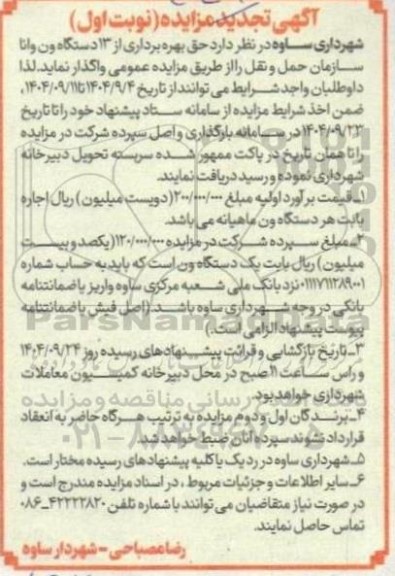 آگهی تجدید مزایده (نوبت اول)
شهرداری ساوه در نظر دارد حق بهره برداری از ۱۳ دستگاه ون وانا
سازمان حمل و نقل را از طریق مزایده عمومی واگذار نماید. لذا
داوطلبان واجد شرایط می توانند از تاریخ ۱۴۰۴/۹/۴ تا ۱۴۰۴/۰۹/۱۱،
ضمن اخذ شرایط مزایده از سامانه ستاد پیشنهاد خود را تا تاریخ
۱۴۰۴/۰۹/۲۳ در سامانه بارگذاری و اصل سپرده شرکت در مزایده
را تا همان تاریخ در پاکت ممهور شده سربسته تحویل دبیرخانه
شهرداری نموده و رسید دریافت نمایند.
۱_ قیمت برآورد اولیه مبلغ ۲۰۰/۰۰۰/۰۰۰ (دویست میلیون) ریال اجاره
بابت هر دستگاه ون ماهیانه می باشد.
۲_ مبلغ سپرده شرکت در مزایده ۱۲۰/۰۰۰/۰۰۰ (یکصد و بیست
میلیون) ریال بابت یک دستگاه ون است که باید به حساب شماره
۰۱۱۱۷۱۱۲۸۹۰۰۱ نزد بانک ملی شعبه مرکزی ساوه واریز یا ضمانتنامه
بانکی در وجه شهرداری ساوه باشد. (اصل فیش یا ضمانتنامه
پیوست پیشنهاد الزامی است.)
۳_ تاریخ بازگشایی و قرائت پیشنهادهای رسیده روز ۱۴۰۴/۰۹/۲۴
و راس ساعت ۱۱ صبح در محل دبیرخانه کمیسیون معاملات
شهرداری خواهد بود.
۴_ برندگان اول و دوم مزایده به ترتیب هرگاه حاضر به انعقاد
قرارداد نشوند سپرده آنان ضبط خواهد شد.
۵_ شهرداری ساوه در رد یک یا کلیه پیشنهادهای رسیده مختار است.
۶_ سایر اطلاعات و جزئیات مربوط، در اسناد مزایده مندرج است و
در صورت نیاز متقاضیان می توانند با شماره تلفن ۴۲۲۲۲۸۲۰_۰۸۶
تماس حاصل نمایند.
رضا مصباحی - شهردار ساوه
ParsNamad